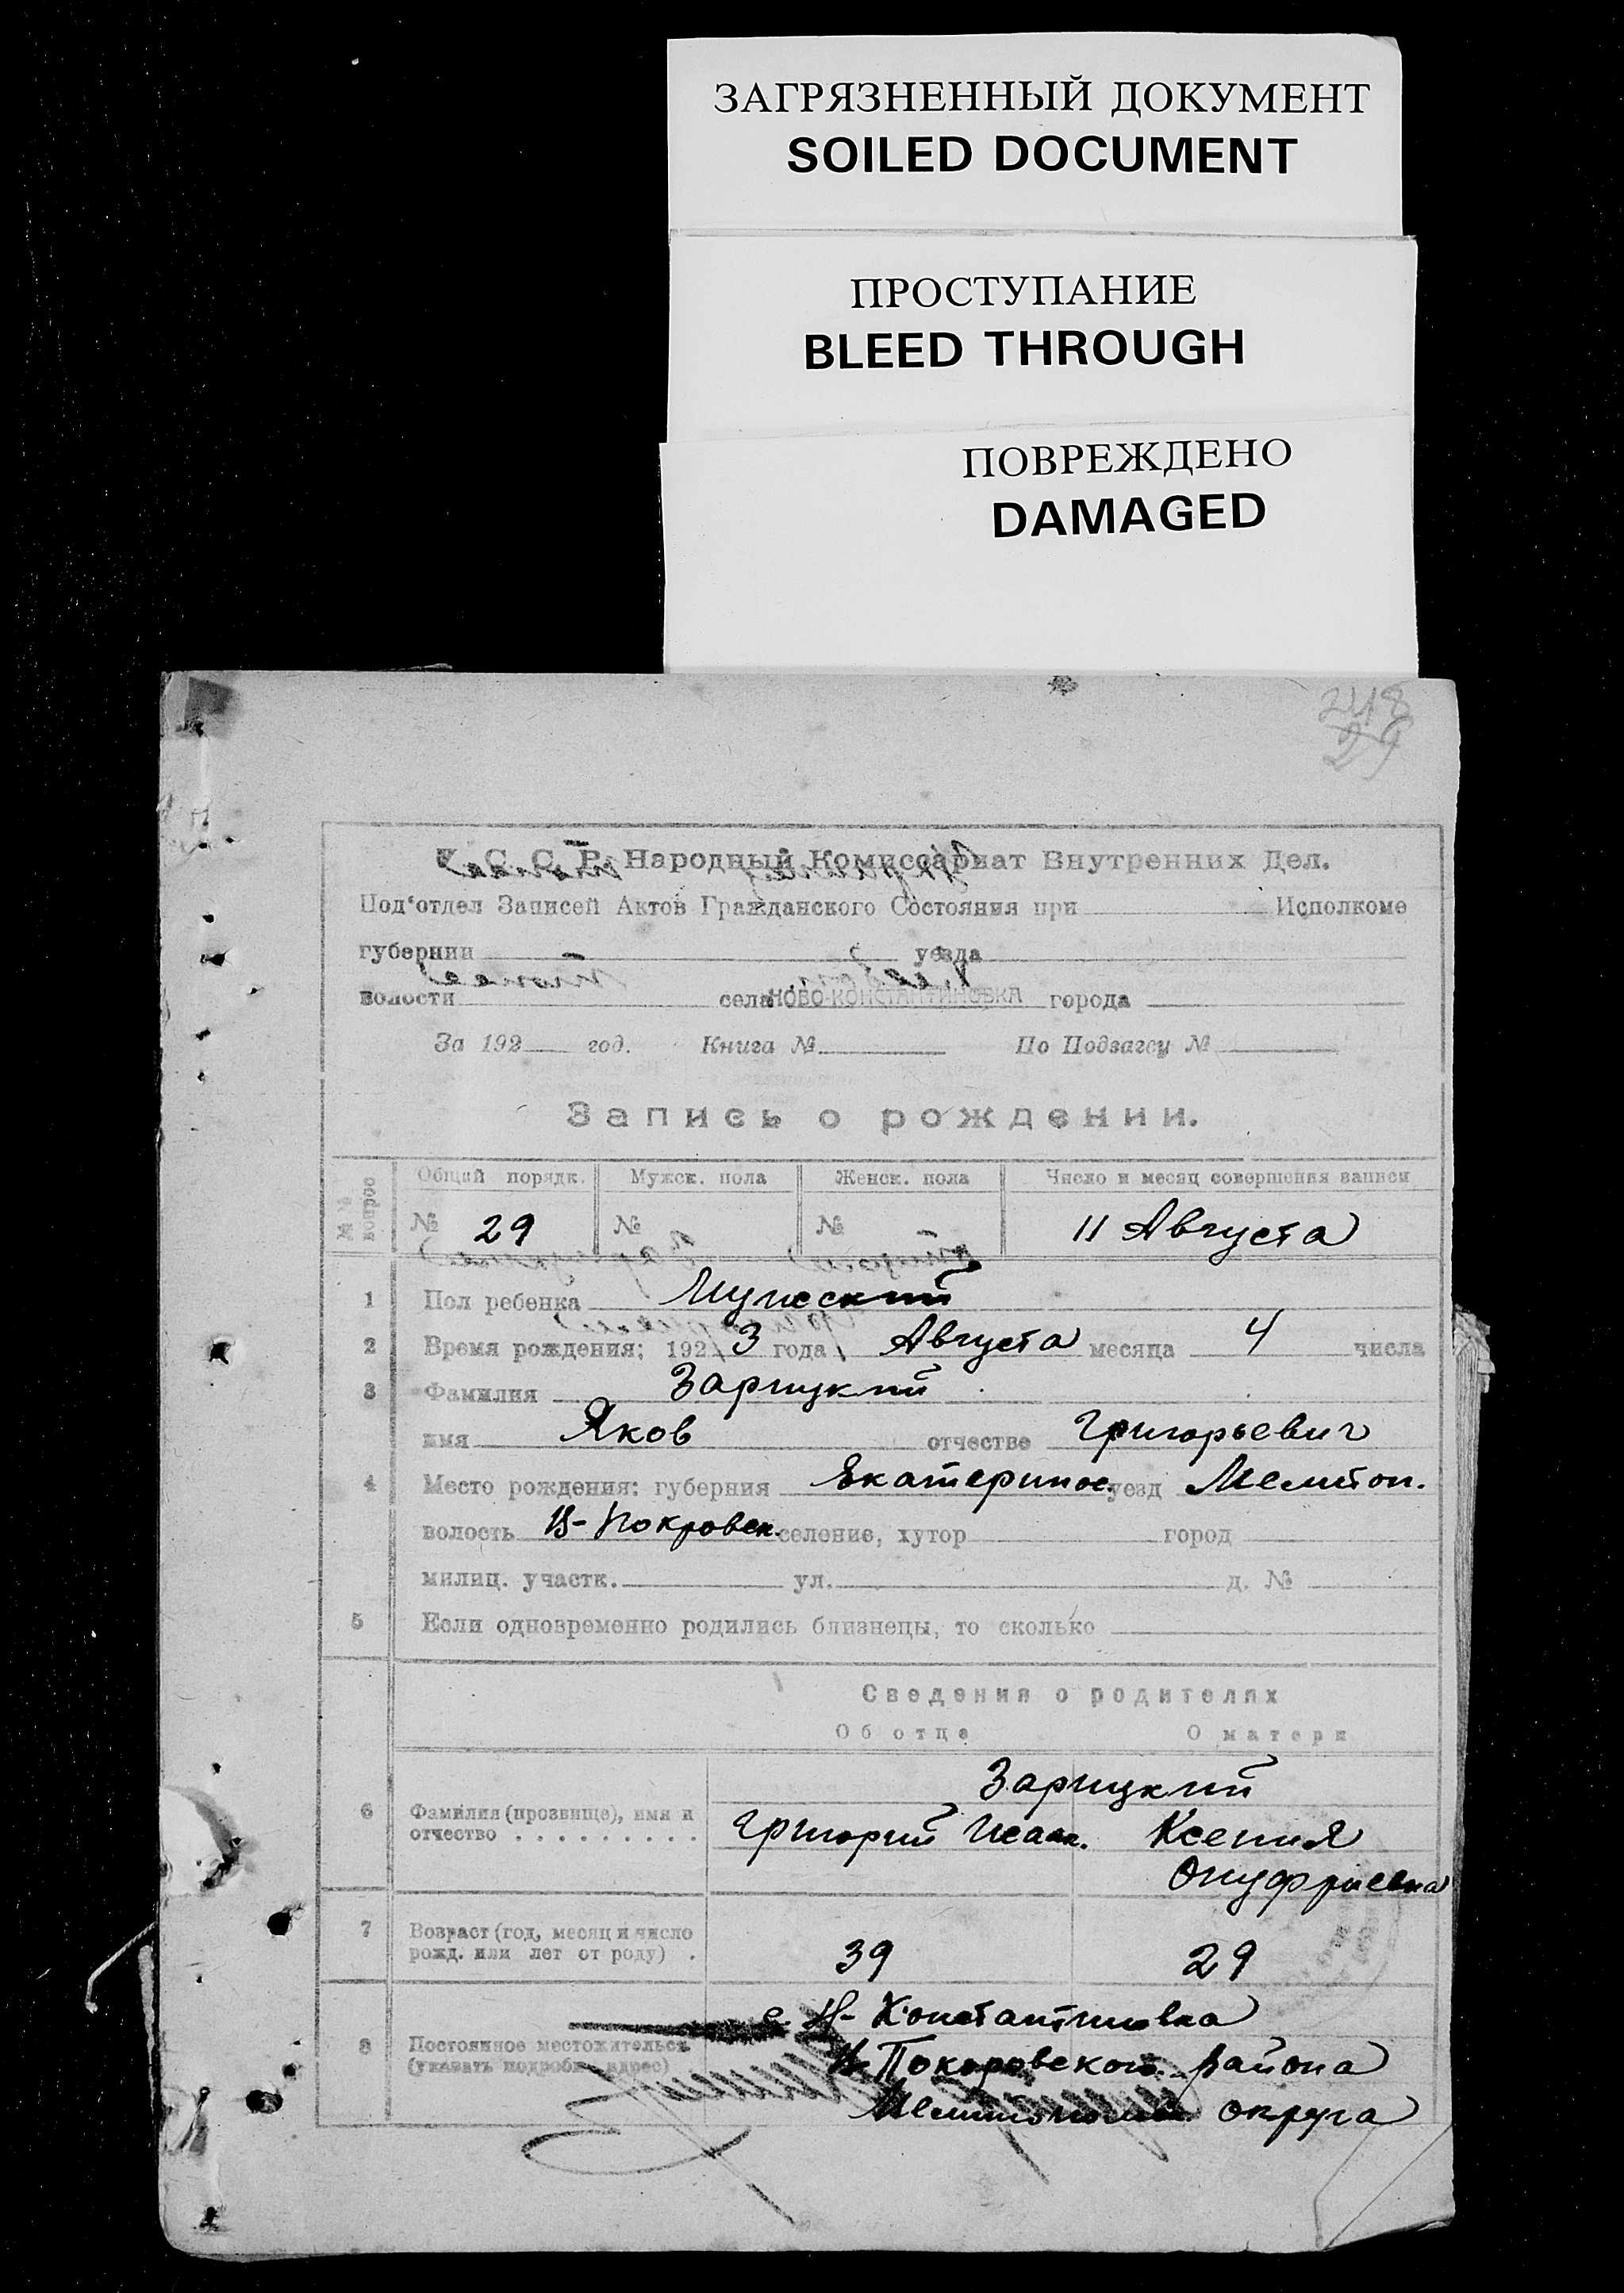 ЗАГРЯЗНЕННЫЙ ДОКУМЕНТ
SOILED DOCUMENT
ПРОСТУПАНИЕ
BLEED THROUGH
ПОВРЕЖДЕНО
DAMAGED
248
29
У. С. С. Р. Народный Комиссариат Внутренних Дел.
Под'отдел Записей Актов Гражданского Состояния при Исполкоме
губернии уезда
волости села НОВО-КОНСТАНТИНОВКА города
За 192 год. Книга № По Подзагсу №
Запись о рождении.
№№ вопрос Общий порядк. Мужск. пола Женск. пола Число и месяц совершения записи
№ 29 № № 11 Августа
1 Пол ребенка Мужеский
2 Время рождения: 192 3 года Августа месяца 4 числа
3 Фамилия Зарицкий
имя Яков отчество Григорьевич
4 Место рождения: губерния Екатеринос. уезд Мелитоп.
волость Н-Покровск. селение, хутор город
милиц. участк. ул. д. №
5 Если одновременно родились близнецы, то сколько
Сведения о родителях
Об отце О матери
Зарицкий
6 Фамилия (прозвище), имя и отчество Григорий Исаак. Ксения
Онуфриевна
7 Возраст (год, месяц и число
рожд. или лет от роду) . 39 29
с. Н-Константиновка
8 Постоянное местожительств.
(указать подробн. адрес) Н-Покровского района
Мелитопольск. округа